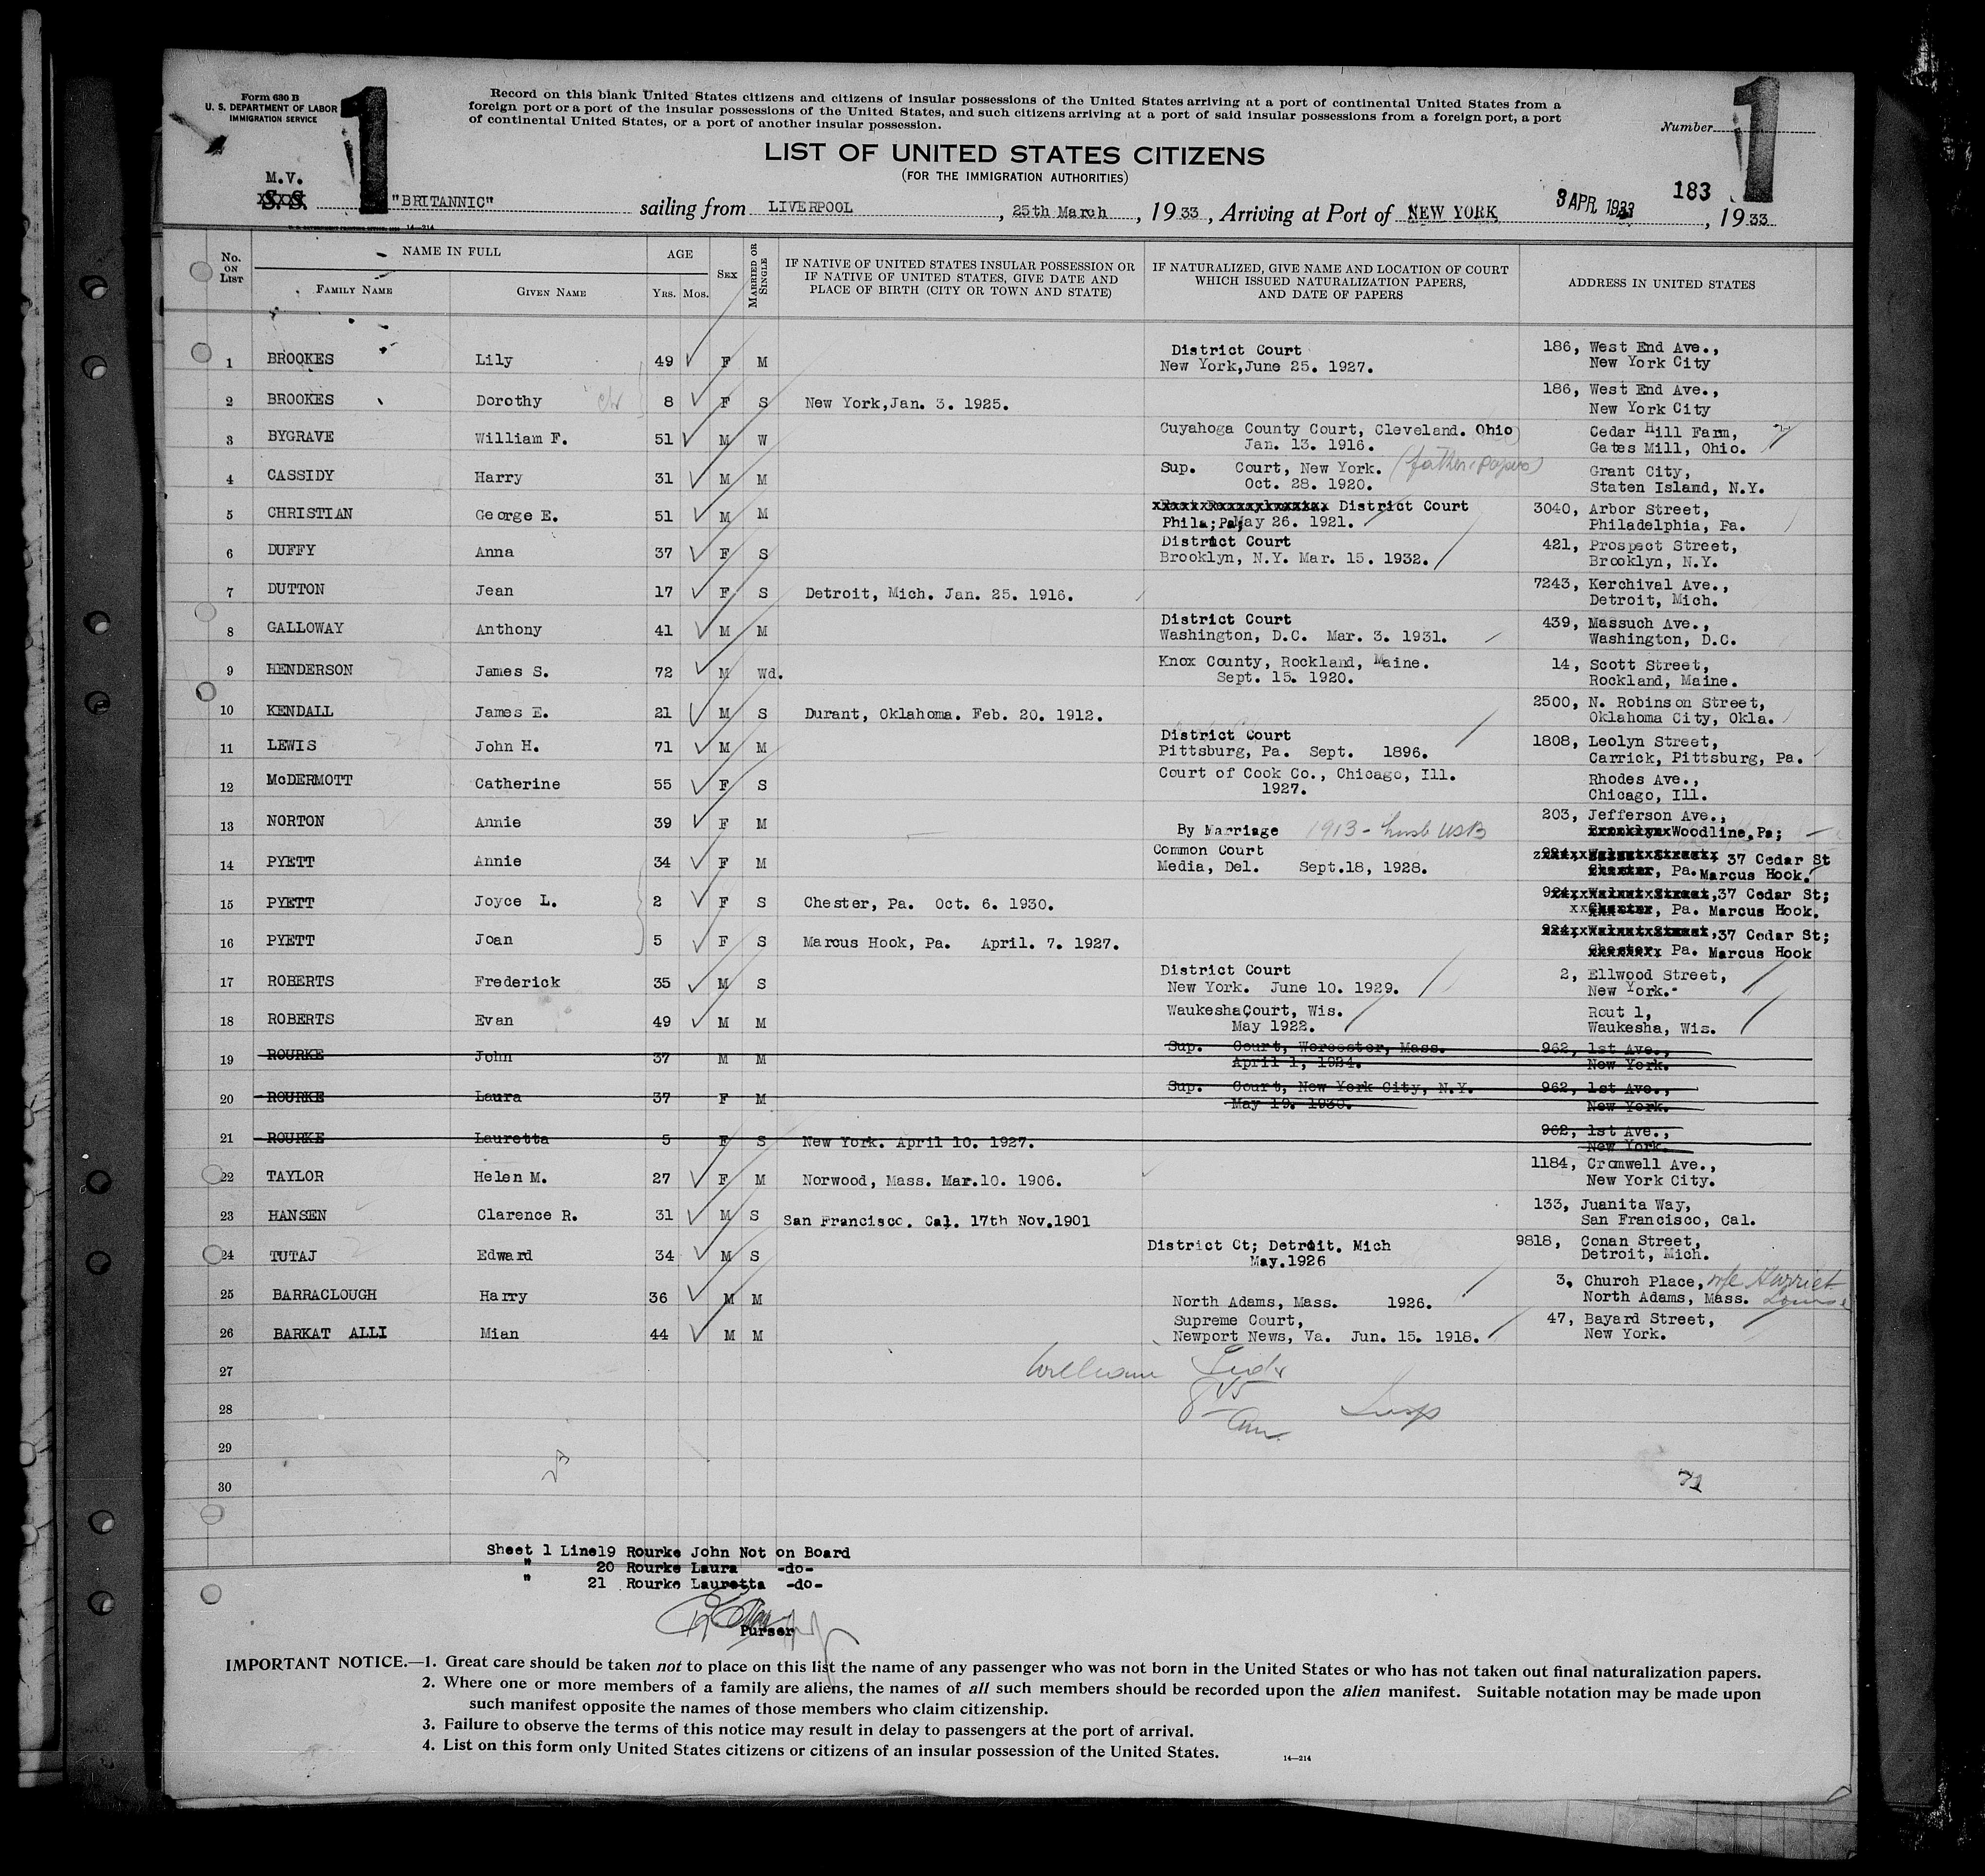 Form 630 B
U. S. DEPARTMENT OF LABOR
IMMIGRATION SERVICE
1
1
Record on this blank United States citizens and citizens of insular possessions of the United States arriving at a port of continental United States from a
foreign port or a port of the insular possessions of the United States, and such citizens arriving at a port of said insular possessions from a foreign port, a port
of continental United States, or a port of another insular possession.
Number
LIST OF UNITED STATES CITIZENS
(FOR THE IMMIGRATION AUTHORITIES)
M.V.
S. S. "BRITANNIC" sailing from LIVERPOOL, 25th March, 1933, Arriving at Port of NEW YORK 3 APR. 1933 183, 1933
14—214
No. ON LIST NAME IN FULL AGE SEX MARRIED OR SINGLE IF NATIVE OF UNITED STATES INSULAR POSSESSION OR IF NATIVE OF UNITED STATES, GIVE DATE AND PLACE OF BIRTH (CITY OR TOWN AND STATE) IF NATURALIZED, GIVE NAME AND LOCATION OF COURT WHICH ISSUED NATURALIZATION PAPERS, AND DATE OF PAPERS ADDRESS IN UNITED STATES
FAMILY NAME GIVEN NAME YRS. MOS.
1 BROOKES Lily 49 F M District Court New York,June 25. 1927. 186, West End Ave., New York City
2 BROOKES Dorothy 8 F S New York,Jan. 3. 1925. 186, West End Ave., New York City
3 BYGRAVE William F. 51 M W Cuyahoga County Court, Cleveland. Ohio Jan. 13. 1916. Cedar Hill Farm, Gates Mill, Ohio.
4 CASSIDY Harry 31 M M Sup. Court, New York. (father's papers) Oct. 28. 1920. Grant City, Staten Island, N.Y.
5 CHRISTIAN George E. 51 M M District Court Phila; Pa; May 26. 1921. 3040, Arbor Street, Philadelphia, Pa.
6 DUFFY Anna 37 F S District Court Brooklyn, N.Y. Mar. 15. 1932. 421, Prospect Street, Brooklyn, N.Y.
7 DUTTON Jean 17 F S Detroit, Mich. Jan. 25. 1916. 7243, Kerchival Ave., Detroit, Mich.
8 GALLOWAY Anthony 41 M M District Court Washington, D.C. Mar. 3. 1931. 439, Massuch Ave., Washington, D.C.
9 HENDERSON James S. 72 M Wd. Knox County, Rockland, Maine. Sept. 15. 1920. 14, Scott Street, Rockland, Maine.
10 KENDALL James E. 21 M S Durant, Oklahoma. Feb. 20. 1912. 2500, N. Robinson Street, Oklahoma City, Okla.
11 LEWIS John H. 71 M M District Court Pittsburg, Pa. Sept. 1896. 1808, Leolyn Street, Carrick, Pittsburg, Pa.
12 McDERMOTT Catherine 55 F S Court of Cook Co., Chicago, Ill. 1927. Rhodes Ave., Chicago, Ill.
13 NORTON Annie 39 F M By Marriage 1913 - husb USB 203, Jefferson Ave., Brooklyn Woodline, Pa;
14 PYETT Annie 34 F M Common Court Media, Del. Sept.18, 1928. 924, Walnut Street, 37 Cedar St Chester, Pa. Marcus Hook.
15 PYETT Joyce L. 2 F S Chester, Pa. Oct. 6. 1930. 924, Walnut Street, 37 Cedar St; Chester, Pa. Marcus Hook.
16 PYETT Joan 5 F S Marcus Hook, Pa. April. 7. 1927. 924, Walnut Street, 37 Cedar St; Chester Pa. Marcus Hook
17 ROBERTS Frederick 35 M S District Court New York. June 10. 1929. 2, Ellwood Street, New York.
18 ROBERTS Evan 49 M M Waukesha Court, Wis. May 1922. Rout 1, Waukesha, Wis.
19 ROURKE John 37 M M Sup. Court, Worcester, Mass. April 1, 1924. 962, 1st Ave., New York.
20 ROURKE Laura 37 F M Sup. Court, New York City, N.Y. May 19. 1930. 962, 1st Ave., New York.
21 ROURKE Lauretta 5 F S New York. April 10. 1927. 962, 1st Ave., New York.
22 TAYLOR Helen M. 27 F M Norwood, Mass. Mar.10. 1906. 1184, Cromwell Ave., New York City.
23 HANSEN Clarence R. 31 M S San Francisco. Cal. 17th Nov.1901 133, Juanita Way, San Francisco, Cal.
24 TUTAJ Edward 34 M S District Ct; Detroit. Mich May.1926 9818, Conan Street, Detroit, Mich.
25 BARRACLOUGH Harry 36 M M North Adams, Mass. 1926. 3, Church Place, North Adams, Mass. wife Harriet Louise
26 BARKAT ALLI Mian 44 M M Supreme Court, Newport News, Va. Jun. 15. 1918. 47, Bayard Street, New York.
27 William
28 Insp
29
30 71
Sheet 1 Line19 Rourke John Not on Board
" 20 Rourke Laura -do-
" 21 Rourke Lauretta -do-
Purser
IMPORTANT NOTICE.—1. Great care should be taken not to place on this list the name of any passenger who was not born in the United States or who has not taken out final naturalization papers.
2. Where one or more members of a family are aliens, the names of all such members should be recorded upon the alien manifest. Suitable notation may be made upon
such manifest opposite the names of those members who claim citizenship.
3. Failure to observe the terms of this notice may result in delay to passengers at the port of arrival.
4. List on this form only United States citizens or citizens of an insular possession of the United States.
14—214